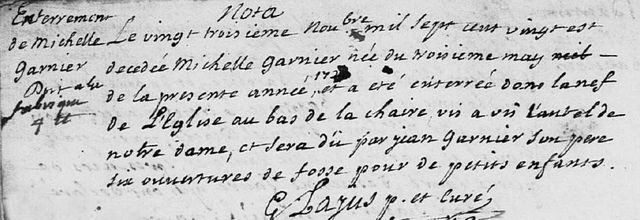 Enterrement
de Michelle
Garnier
Dt a la
fabrique
4 tt
Nota
Le vingt troisieme Noubre mil sept cent vingt est
decedée Michelle Garnier née du troisieme may mil
de la presente année, 1720 et a eté enterrée dans la nef
de L'Eglise au bas de la chaire, vis a vis l'autel de
notre dame, et sera dû par jean Garnier son pere
six ouvertures de fosse pour de petits enfants.
G Lajus p. et Curé